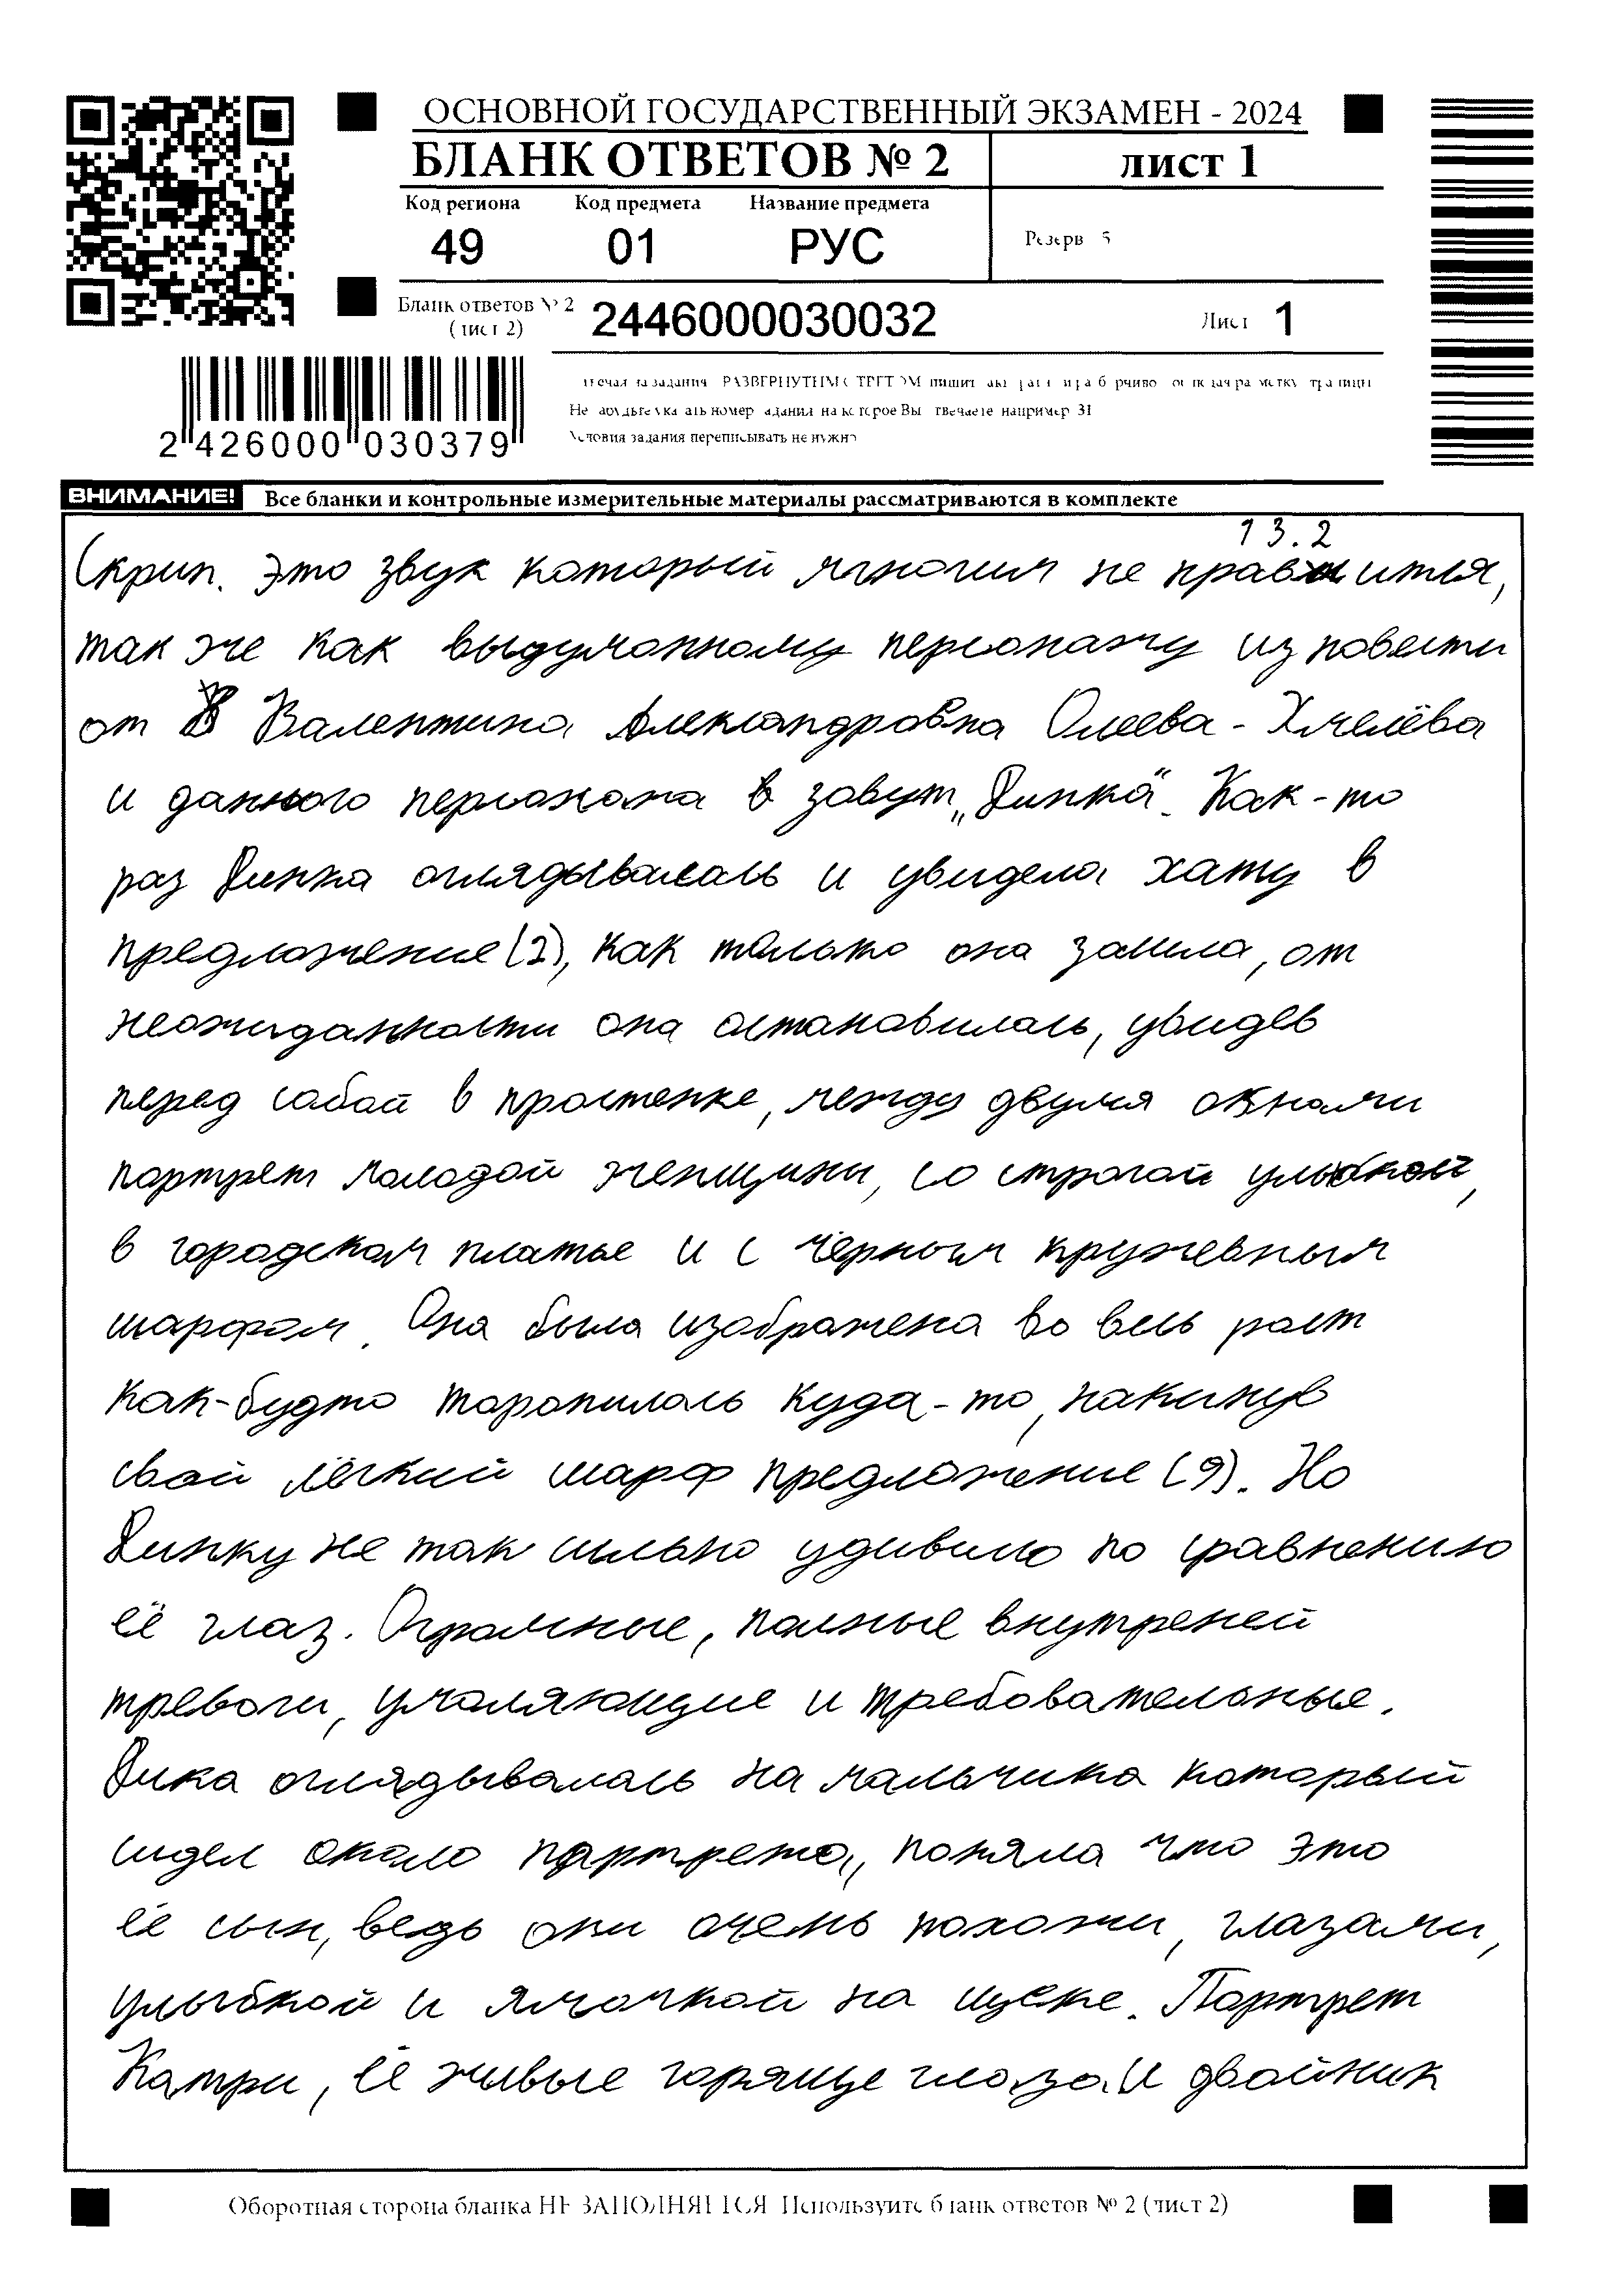 ОСНОВНОЙ ГОСУДАРСТВЕННЫЙ ЭКЗАМЕН - 2024
БЛАНК ОТВЕТОВ № 2
лист 1
Код региона Код предмета Название предмета
49 01 РУС
Резерв 5
Бланк ответов № 2
(лист 2)
2446000030032
Лист 1
2 426000 030379
Условия задания переписывать не нужно
ВНИМАНИЕ! Все бланки и контрольные измерительные материалы рассматриваются в комплекте
13.2
Скрип. это звук который многим не нравится,
так же как выдуманному персонажу из повести
от Валентина Александровна Осеева-Хмелёва
и данного персонажа в зовут „Динка“. Как-то
раз Динка оглядывалась и увидела хату в
предложение (2), как только она зашла, от
неожиданности она остановилась, увидев
перед собой в простенке, между двумя окнами
портрет молодой женщины, со строгой улыбкой,
в городском платье и с чёрным кружевным
шарфом. Она была изображена во весь рост
как-будто торопилась куда-то, накинув
свой лёгкий шарф предложение (9). Но
Динку не так сильно удивило по сравнению
её глаз. Огромные, полные внутреней
тревоги, умоляющие и требовательные.
Дика оглядывалась на мальчика который
сидел около портрета, поняла что это
её сын, ведь они очень похожи, глазами,
улыбкой и ямочкой на щеке. Портрет
Катри, её живые горящие глаза и двойник
Оборотная сторона бланка НЕ ЗАПОЛНЯЕТСЯ Используйте бланк ответов № 2 (лист 2)